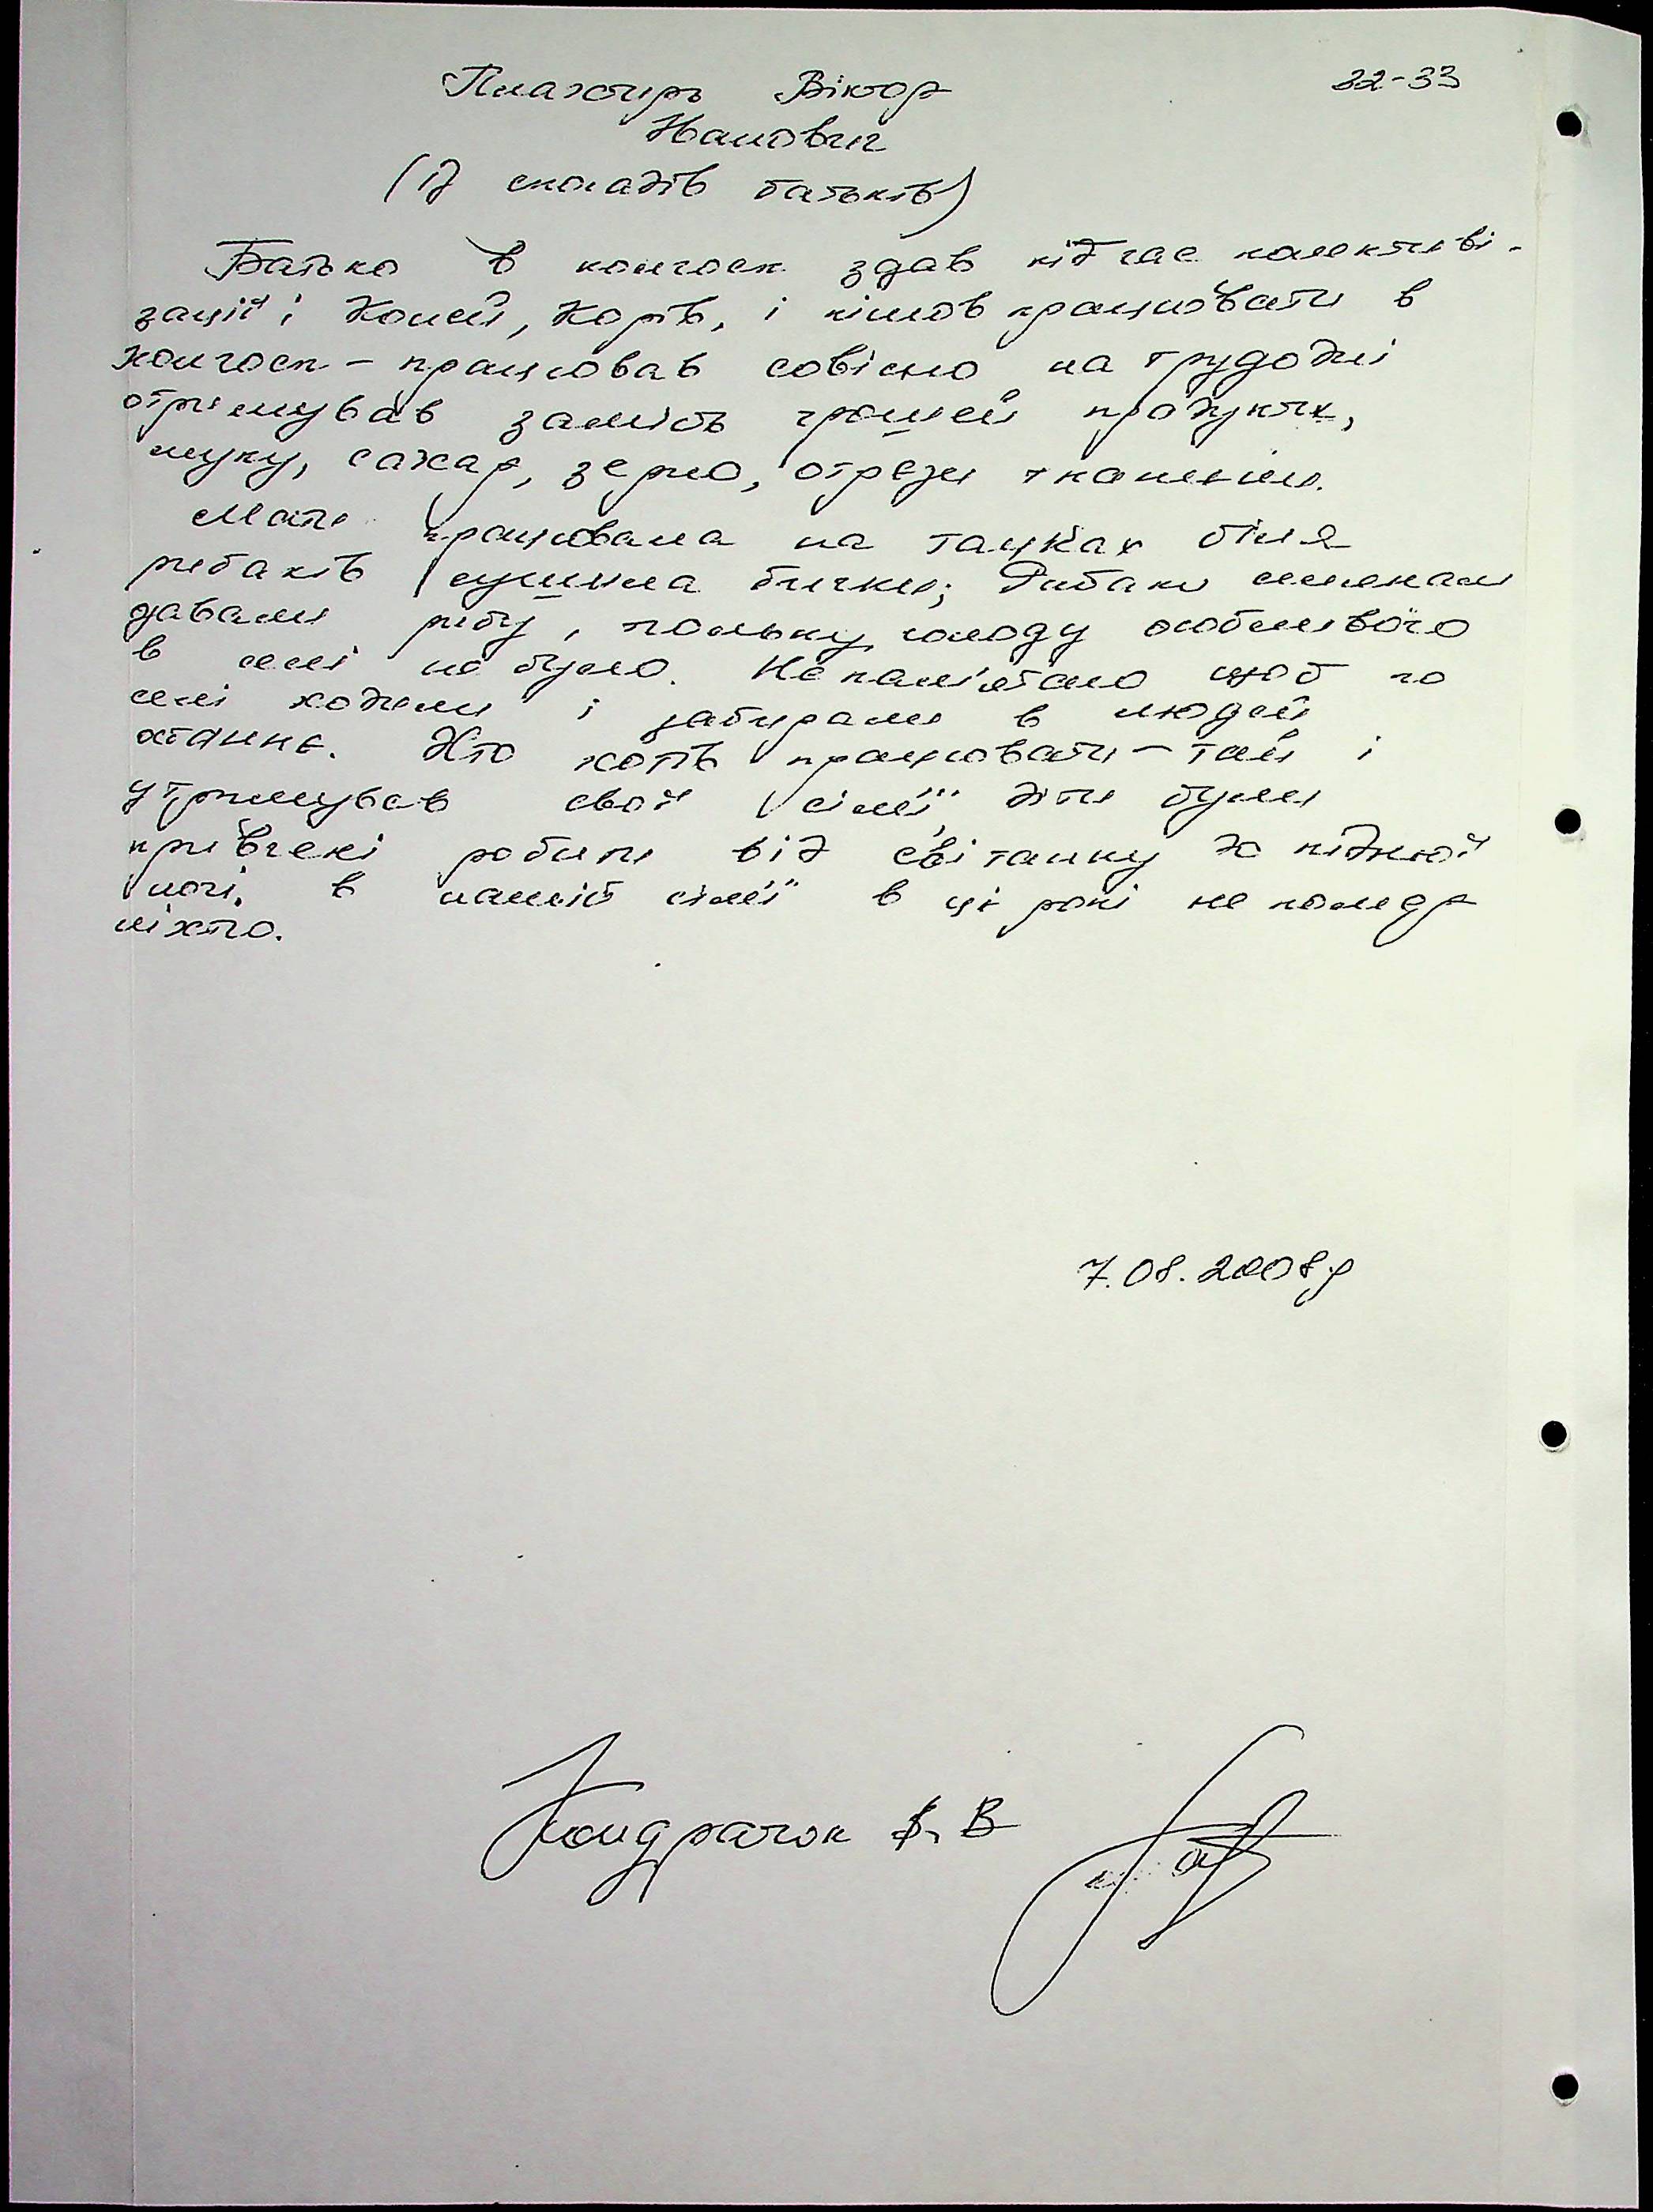 Пластирь Віктор 32-33
Іванович
(із спогадів батьків)
Батько в колгосп здав під час колективі-
зації і коней, корів, і пішов працювати в
колгосп - працював совісно на трудодні
отримував замість грошей продукти,
муку, сахар, зерно, отрези тканини.
Мати працювала на тачках біля
рибаків сушила бички; Рибаки селянам
давали рибу, голоду особливого
в селі не було. Не пам'ятаю щоб по
селі ходили і забирали в людей
останнє. Хто хотів працювати - той і
утримував своїй сім'ї, діти були
привчені робити від світанку до пізньої
ночі. В нашій сім'ї в ці роки не помер
ніхто.
7.08.2008р
Кондрачок В